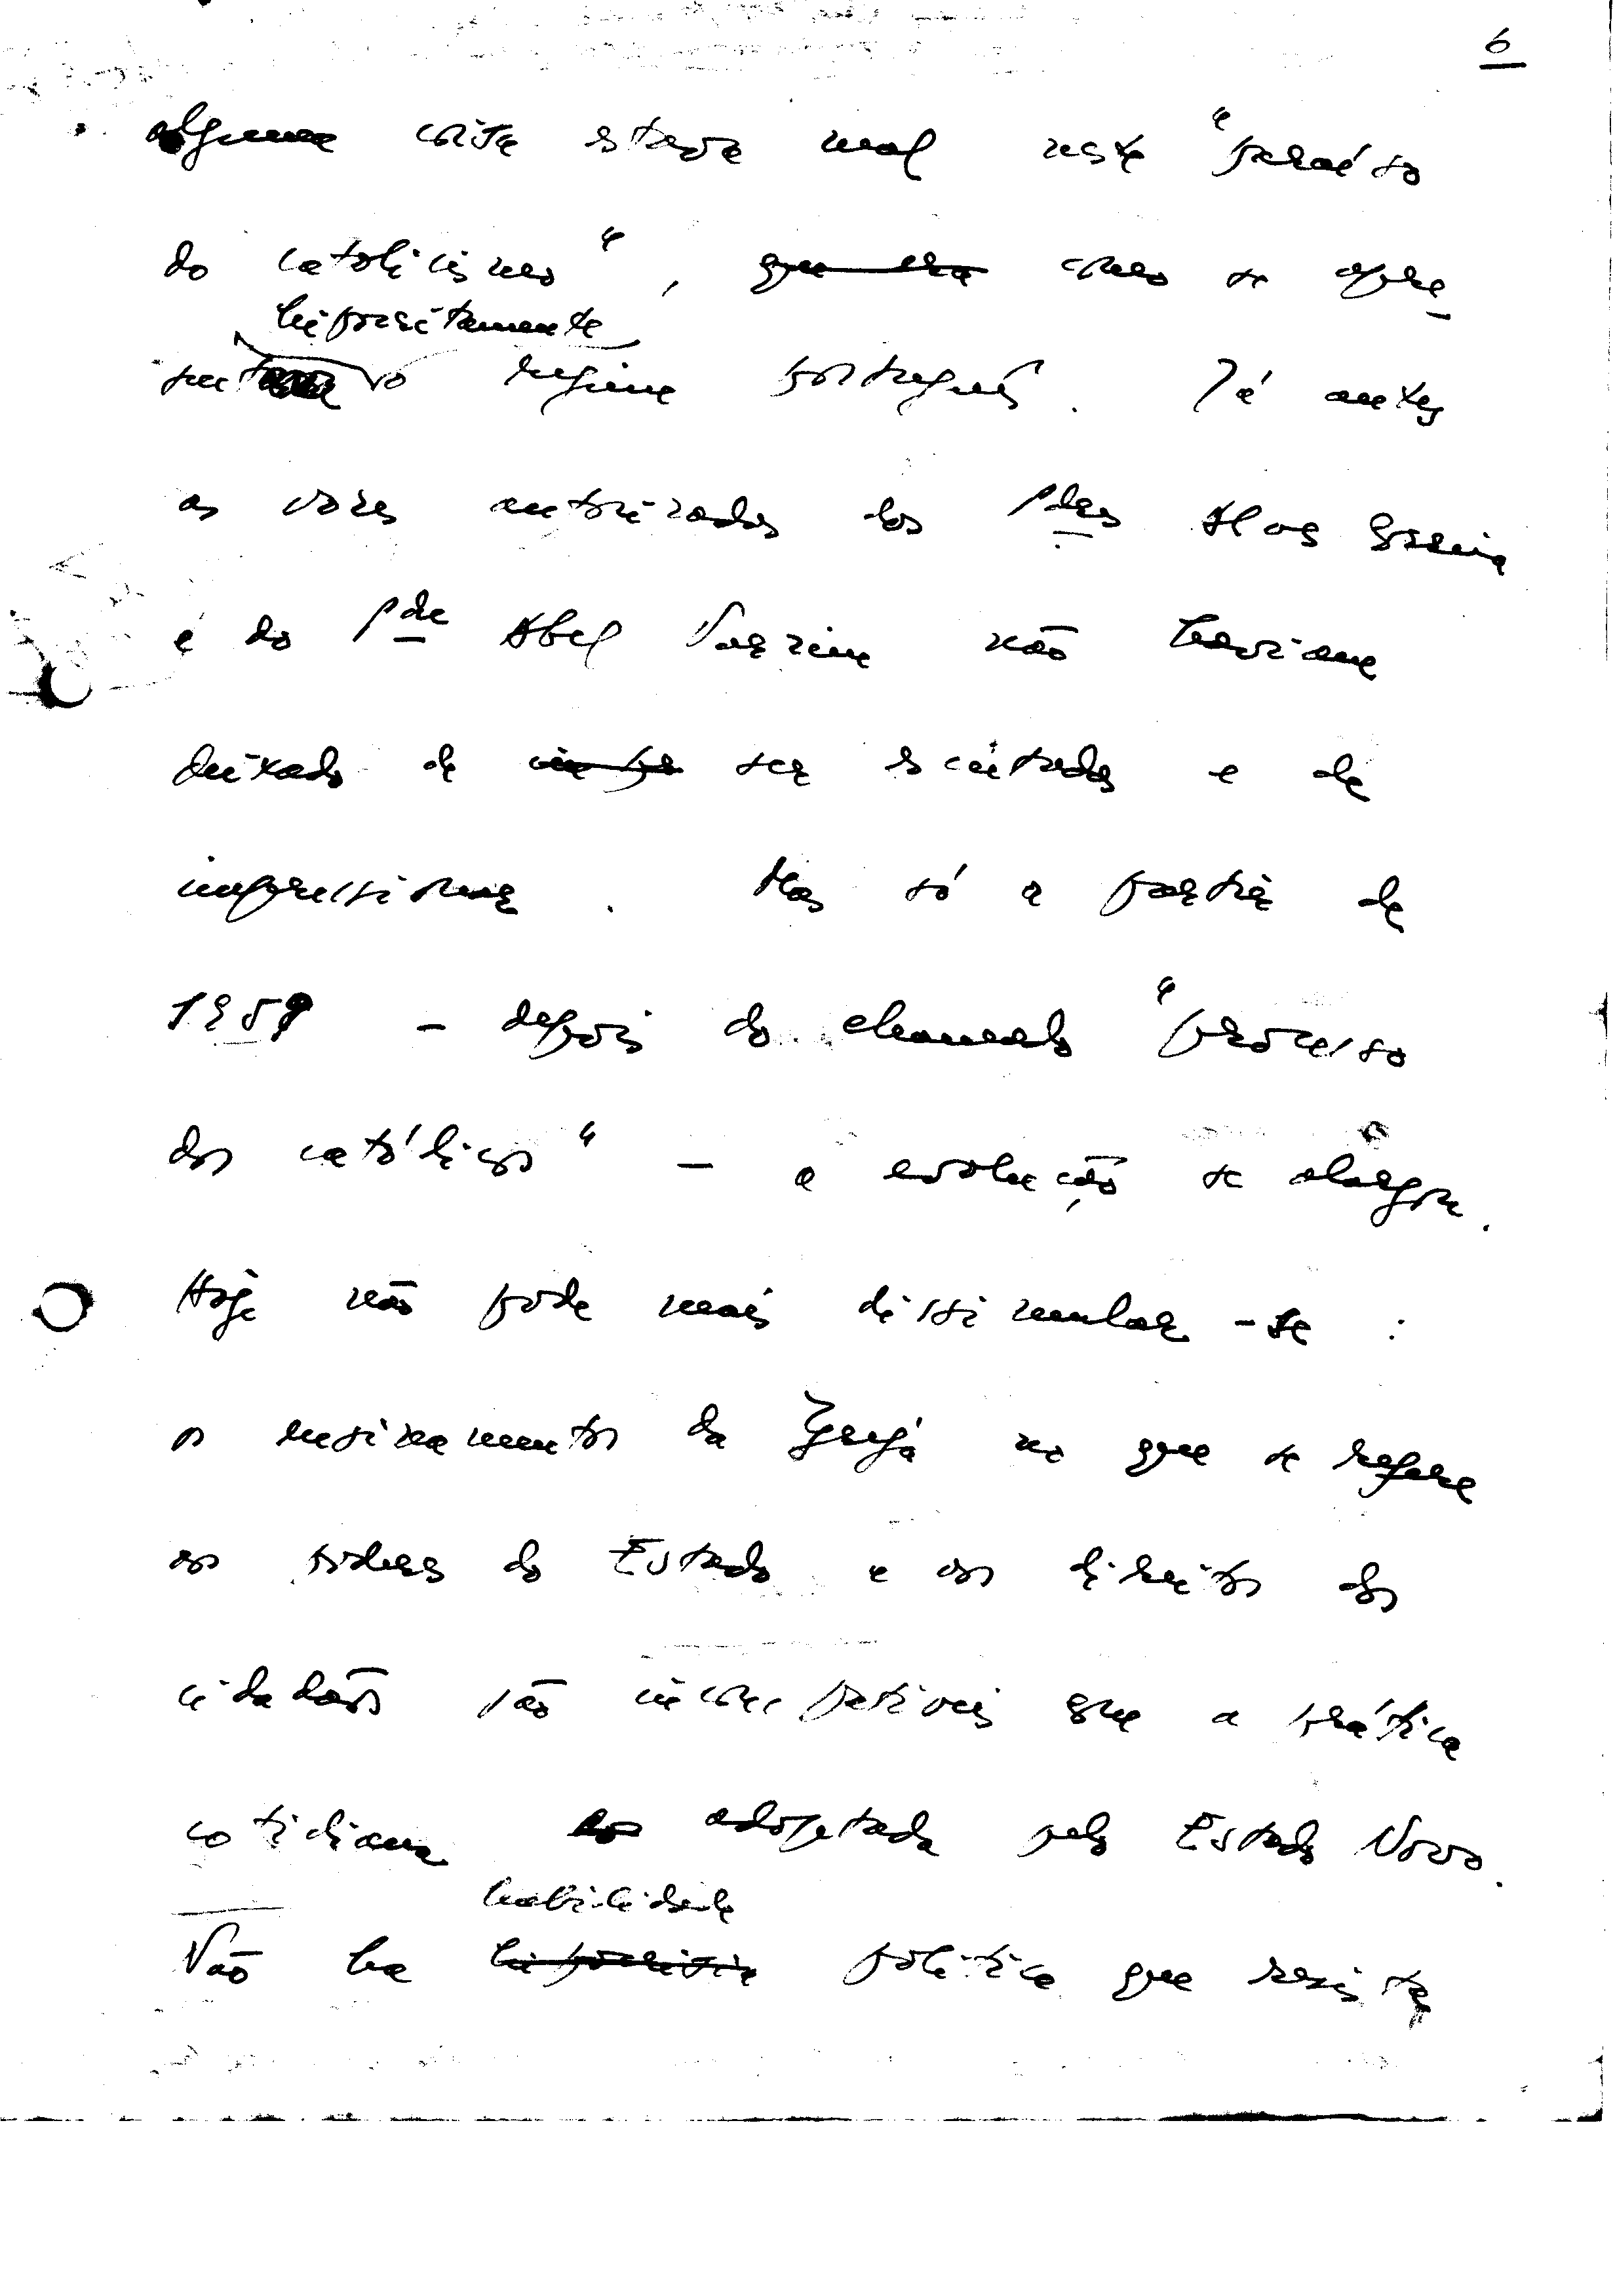 6
alguma coisa estava mal neste "paraíso
do catolicismo", que era como se apre-
hipocritamente
senta o regime português. Já antes
as vozes autorizadas dos Pdes Alves Correia
e do Pde Abel Varzim não haviam
deixado de ser escutadas e de
impressionar. Mas só a partir de
1959 - depois do chamado "processo
dos católicos" - a evolução se alarga.
Hoje não pode mais dissimular-se:
os ensinamentos da Igreja no que se refere
aos poderes do Estado e aos direitos dos
cidadãos são incompatíveis que a prática
cotidiana adoptada pelo Estado Novo.
habilidade
Não ha hipocrisia política que resista